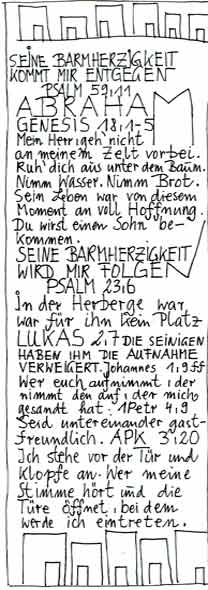 SEINE BARMHERZIGKEIT
KOMMT MIR ENTGEGEN
PSALM 59:11
ABRAHAM
GENESIS 18:1-5
Mein Herr geh nicht
an meinem Zelt vorbei.
Ruh dich aus unter dem Baum.
Nimm Wasser. Nimm Brot.
Sein Leben war von diesem
Moment an voll Hoffnung.
Du wirst einen Sohn be-
kommen.
SEINE BARMHERZIGKEIT
WIRD MIR FOLGEN
PSALM 23:6
In der Herberge war
war für ihn kein Platz
LUKAS 2:7 DIE SEINIGEN
HABEN IHM DIE AUFNAHME
VERWEIGERT. Johannes 1:9ff
Wer euch aufnimmt, der
nimmt den auf, der mich
gesandt hat. 1 Petr 4:9
Seid untereinander gast-
freundlich. APK 3:20
Ich stehe vor der Tür und
klopfe an. Wer meine
Stimme hört und die
Türe öffnet, bei dem
werde ich eintreten.